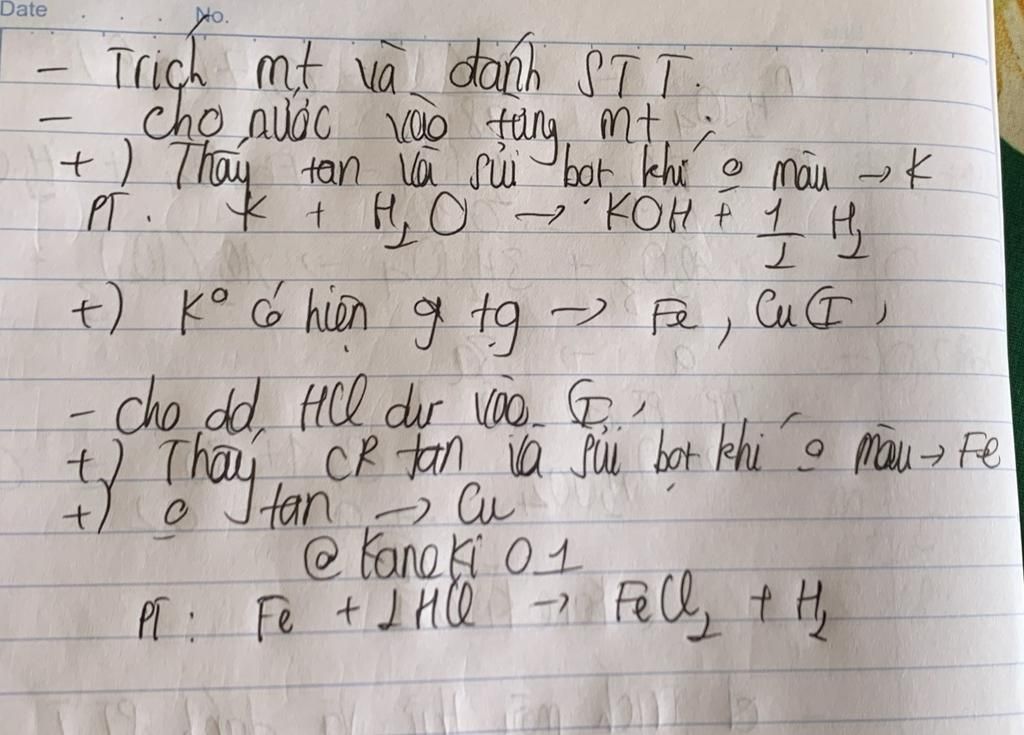 Date No.
- Trích mt và đánh STT.
- Cho nước vào từng mt :
+) Thấy tan và sủi bọt khí o màu → K
PT. K + H₂O → KOH + 1/2 H₂
+) K° có hiện g tg → Fe, Cu (I)
- Cho dd HCl dư vào (I)
+) Thấy CR tan và sủi bọt khí o màu → Fe
+) o tan → Cu
@kaneki 01
PT : Fe + 2HCl → FeCl₂ + H₂